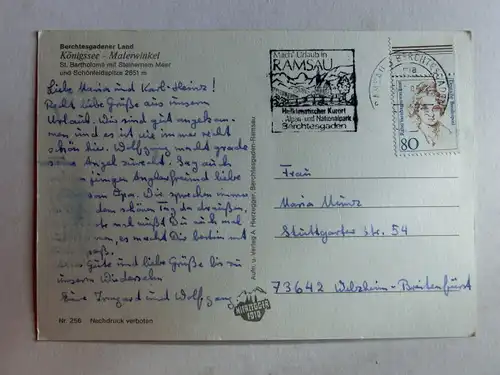 Berchtesgadener Land
Königssee - Malerwinkel
St. Bartholomä mit Steinernem Meer
und Schönfeldspitze 2651 m
Liebe Maria und Karl-Heinz!
Recht liebe Grüße aus unserem
Urlaub. Wir sind gut angekom-
men und es ist wie immer recht
schön hier. Wolfgang macht gerade
seine Angel zurecht. Sag auch
jungen Anglerfreund liebe
vom Opa. Die sprechen immer
den schönen Tag da draußen,
mußt Du auch mal
es macht Dir bestimmt
Spaß.
Gute und liebe Grüße bis zu
unserem Wiedersehn
Eure Irmgard und Wolfgang
Nr 256 Nachdruck verboten
Aufn. u. Verlag A. Hierzegger, Berchtesgaden-Ramsau
HIERZEGGER
FOTO
Mach' Urlaub in
RAMSAU
Heilklimatischer Kurort
Alpen- und Nationalpark
Berchtesgaden
80
Frau
Maria Münz
Stuttgarter Str. 54
73642 Welzheim - Breitenfürst